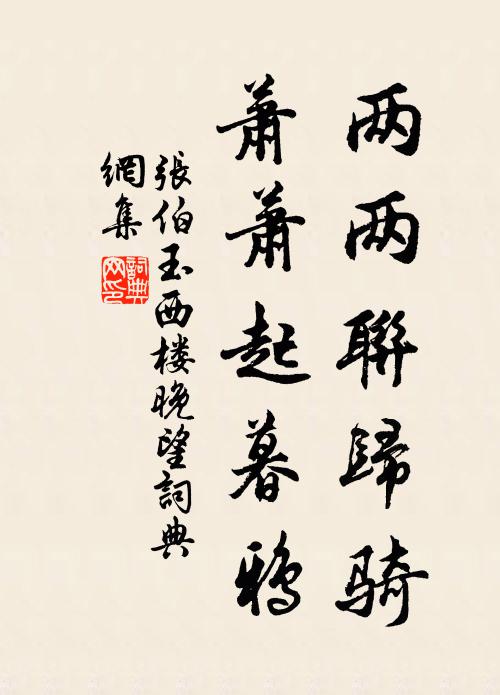 两两聯歸騎
蕭蕭起暮鴉
張伯玉西楼晚望詞典
網集
詞典
网印